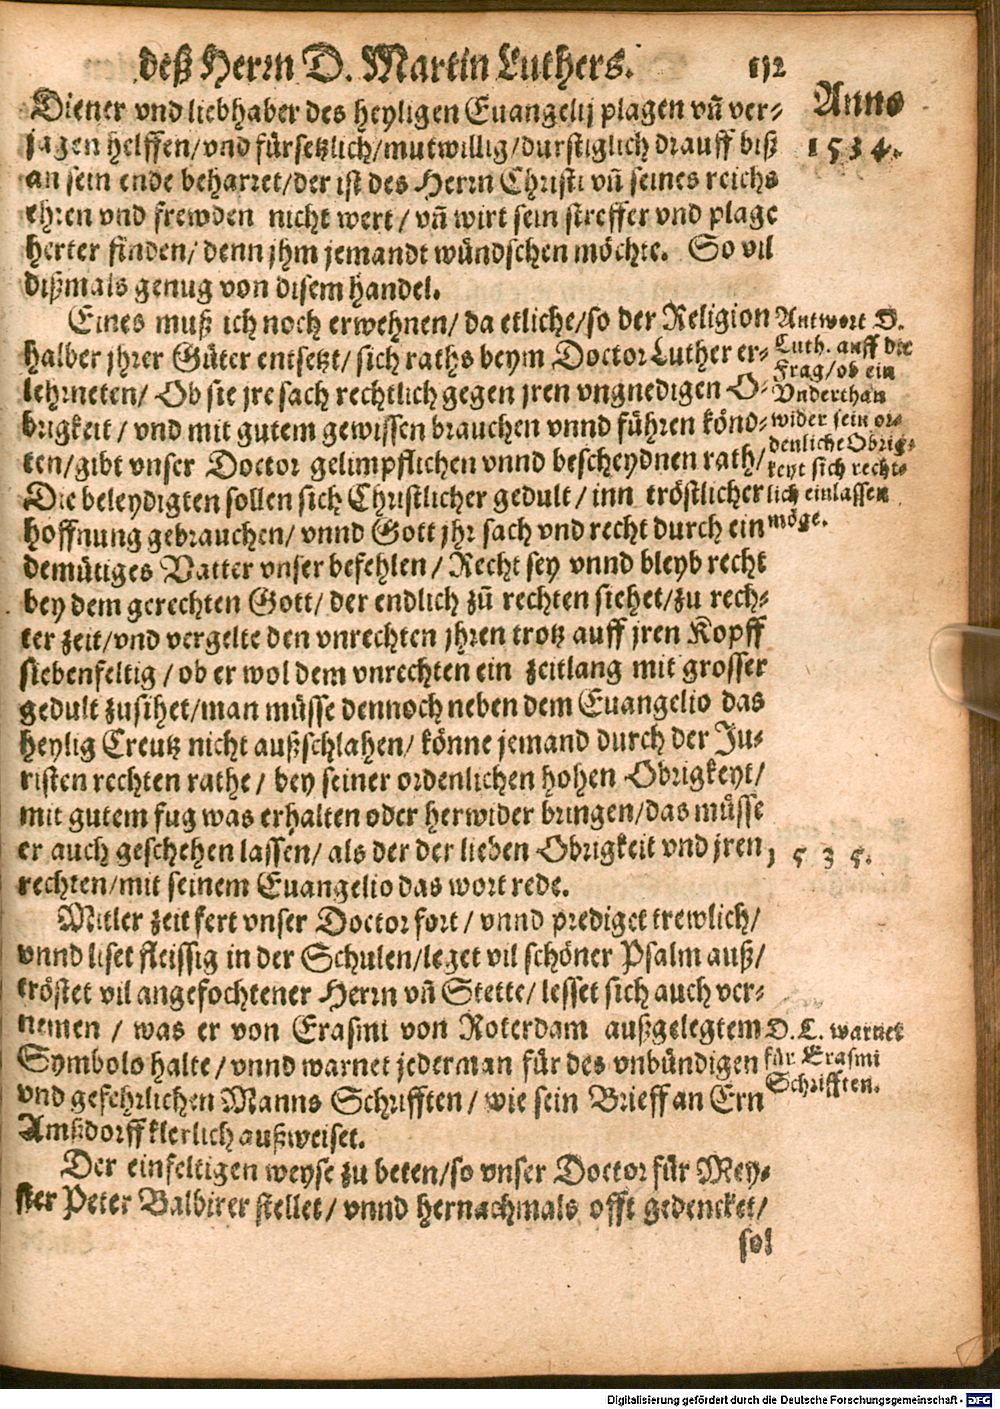 deß Herrn D. Martin Luthers. 132
Anno
1534.
Diener vnd liebhaber des heyligen Euangelij plagen vñ ver-
jagen helffen/vnd fürsetzlich/mutwillig/durstiglich drauff biß
an sein ende beharret/der ist des Herrn Christi vñ seines reichs
ehren vnd frewden nicht wert/ vñ wirt sein streffer vnd plage
herter finden/ denn jhm jemandt wündschen möchte. So vil
dißmals genug von disem handel.
Eines muß ich noch erwehnen/ da etliche/so der Religion
halber jhrer Güter entsetzt/ sich raths beym Doctor Luther er-
lehrneten/ Ob sie jre sach rechtlich gegen jren vngnedigen O-
brigkeit/ vnd mit gutem gewissen brauchen vnnd führen könd-
ten/gibt vnser Doctor gelimpflichen vnnd bescheydnen rath/
Die beleydigten sollen sich Christlicher gedult/ inn tröstlicher
hoffnung gebrauchen/ vnnd Gott jhr sach vnd recht durch ein
demütiges Vatter vnser befehlen/ Recht sey vnnd bleyb recht
bey dem gerechten Gott/ der endlich zũ rechten siehet/zu rech-
ter zeit/vnd vergelte den vnrechten jhren trotz auff jren Kopff
siebenfeltig/ ob er wol dem vnrechten ein zeitlang mit grosser
gedult zusihet/man müsse dennoch neben dem Euangelio das
heylig Creutz nicht außschlahen/ könne jemand durch der Ju-
risten rechten rathe/ bey seiner ordenlichen hohen Obrigkeyt/
mit gutem fug was erhalten oder herwider bringen/das müsse
er auch geschehen lassen/ als der der lieben Obrigkeit vnd jren
rechten/mit seinem Euangelio das wort rede.
Antwort D.
Luth. auff die
Frag/ob ein
Vnderthan
wider sein or-
denliche Obrig-
keyt sich recht-
lich einlassen
möge.
1535.
Mitler zeit fert vnser Doctor fort/ vnnd prediget trewlich/
vnnd liset fleissig in der Schulen/leget vil schöner Psalm auß/
tröstet vil angefochtener Herrn vñ Stette/ lesset sich auch ver-
nemen/ was er von Erasmi von Roterdam außgelegtem
Symbolo halte/ vnnd warnet jederman für des vnbündigen
vnd gefehrlichen Manns Schrifften/ wie sein Brieff an Ern
Amßdorff klerlich außweiset.
D. L. warnet
für Erasmi
Schrifften.
Der einfeltigen weyse zu beten/so vnser Doctor für Mey-
ster Peter Balbirer stellet/ vnnd hernachmals offt gedencket/
sol
Digitalisierung gefördert durch die Deutsche Forschungsgemeinschaft - DFG